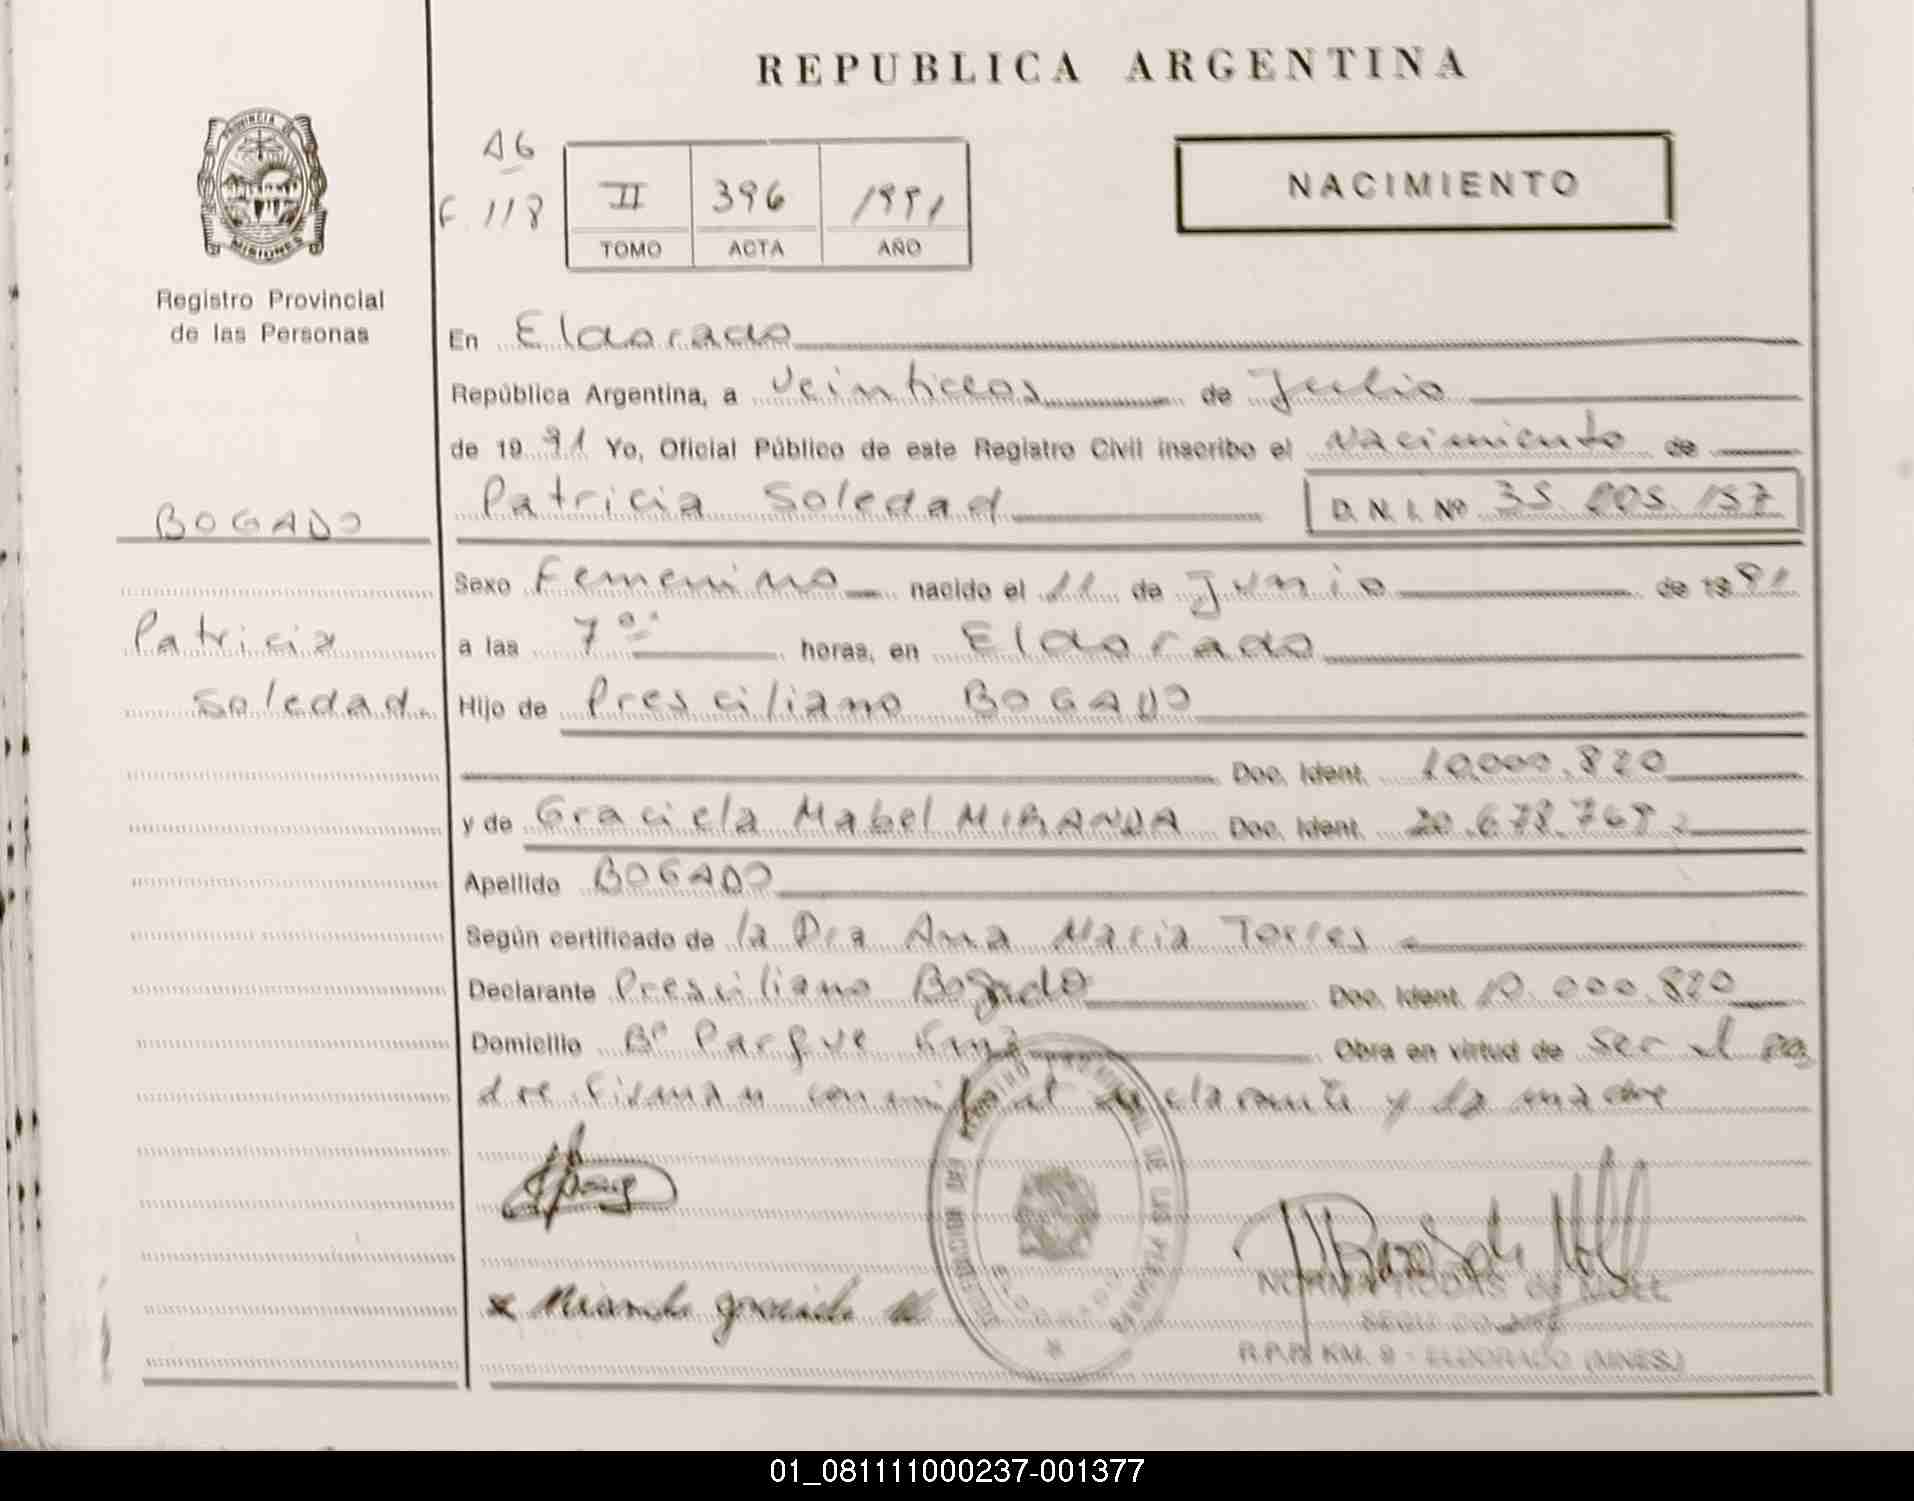 REPUBLICA ARGENTINA
PROVINCIA DE
MISIONES
Registro Provincial
de las Personas
A6
F. 118
II 396 1991
TOMO ACTA AÑO
NACIMIENTO
En Eldorado
República Argentina, a veintidos de Julio
de 19 91 Yo, Oficial Público de este Registro Civil inscribo el Nacimiento de
BOGADO
Patricia Soledad D.N.I. Nº 35. 157
Sexo Femenino nacido el 11 de Junio de 19 91
Patricia
a las 7 horas, en Eldorado
Soledad.
Hijo de Presciliano BOGADO
Doc. Ident. 10.000.820
y de Graciela Mabel MIRANDA Doc. Ident. 20.678.769
Apellido BOGADO
Según certificado de la Dra Ana Maria Torres
Declarante Presciliano Bogado Doc. Ident. 10.000.820
Domicilio Bº Parque Obra en virtud de ser el pa
dre. Firman conmigo el declarante y la madre
x Miranda graciela M
SEGU
R.P.P. KM. 9 - ELDORADO (MNES.)
01_081111000237-001377